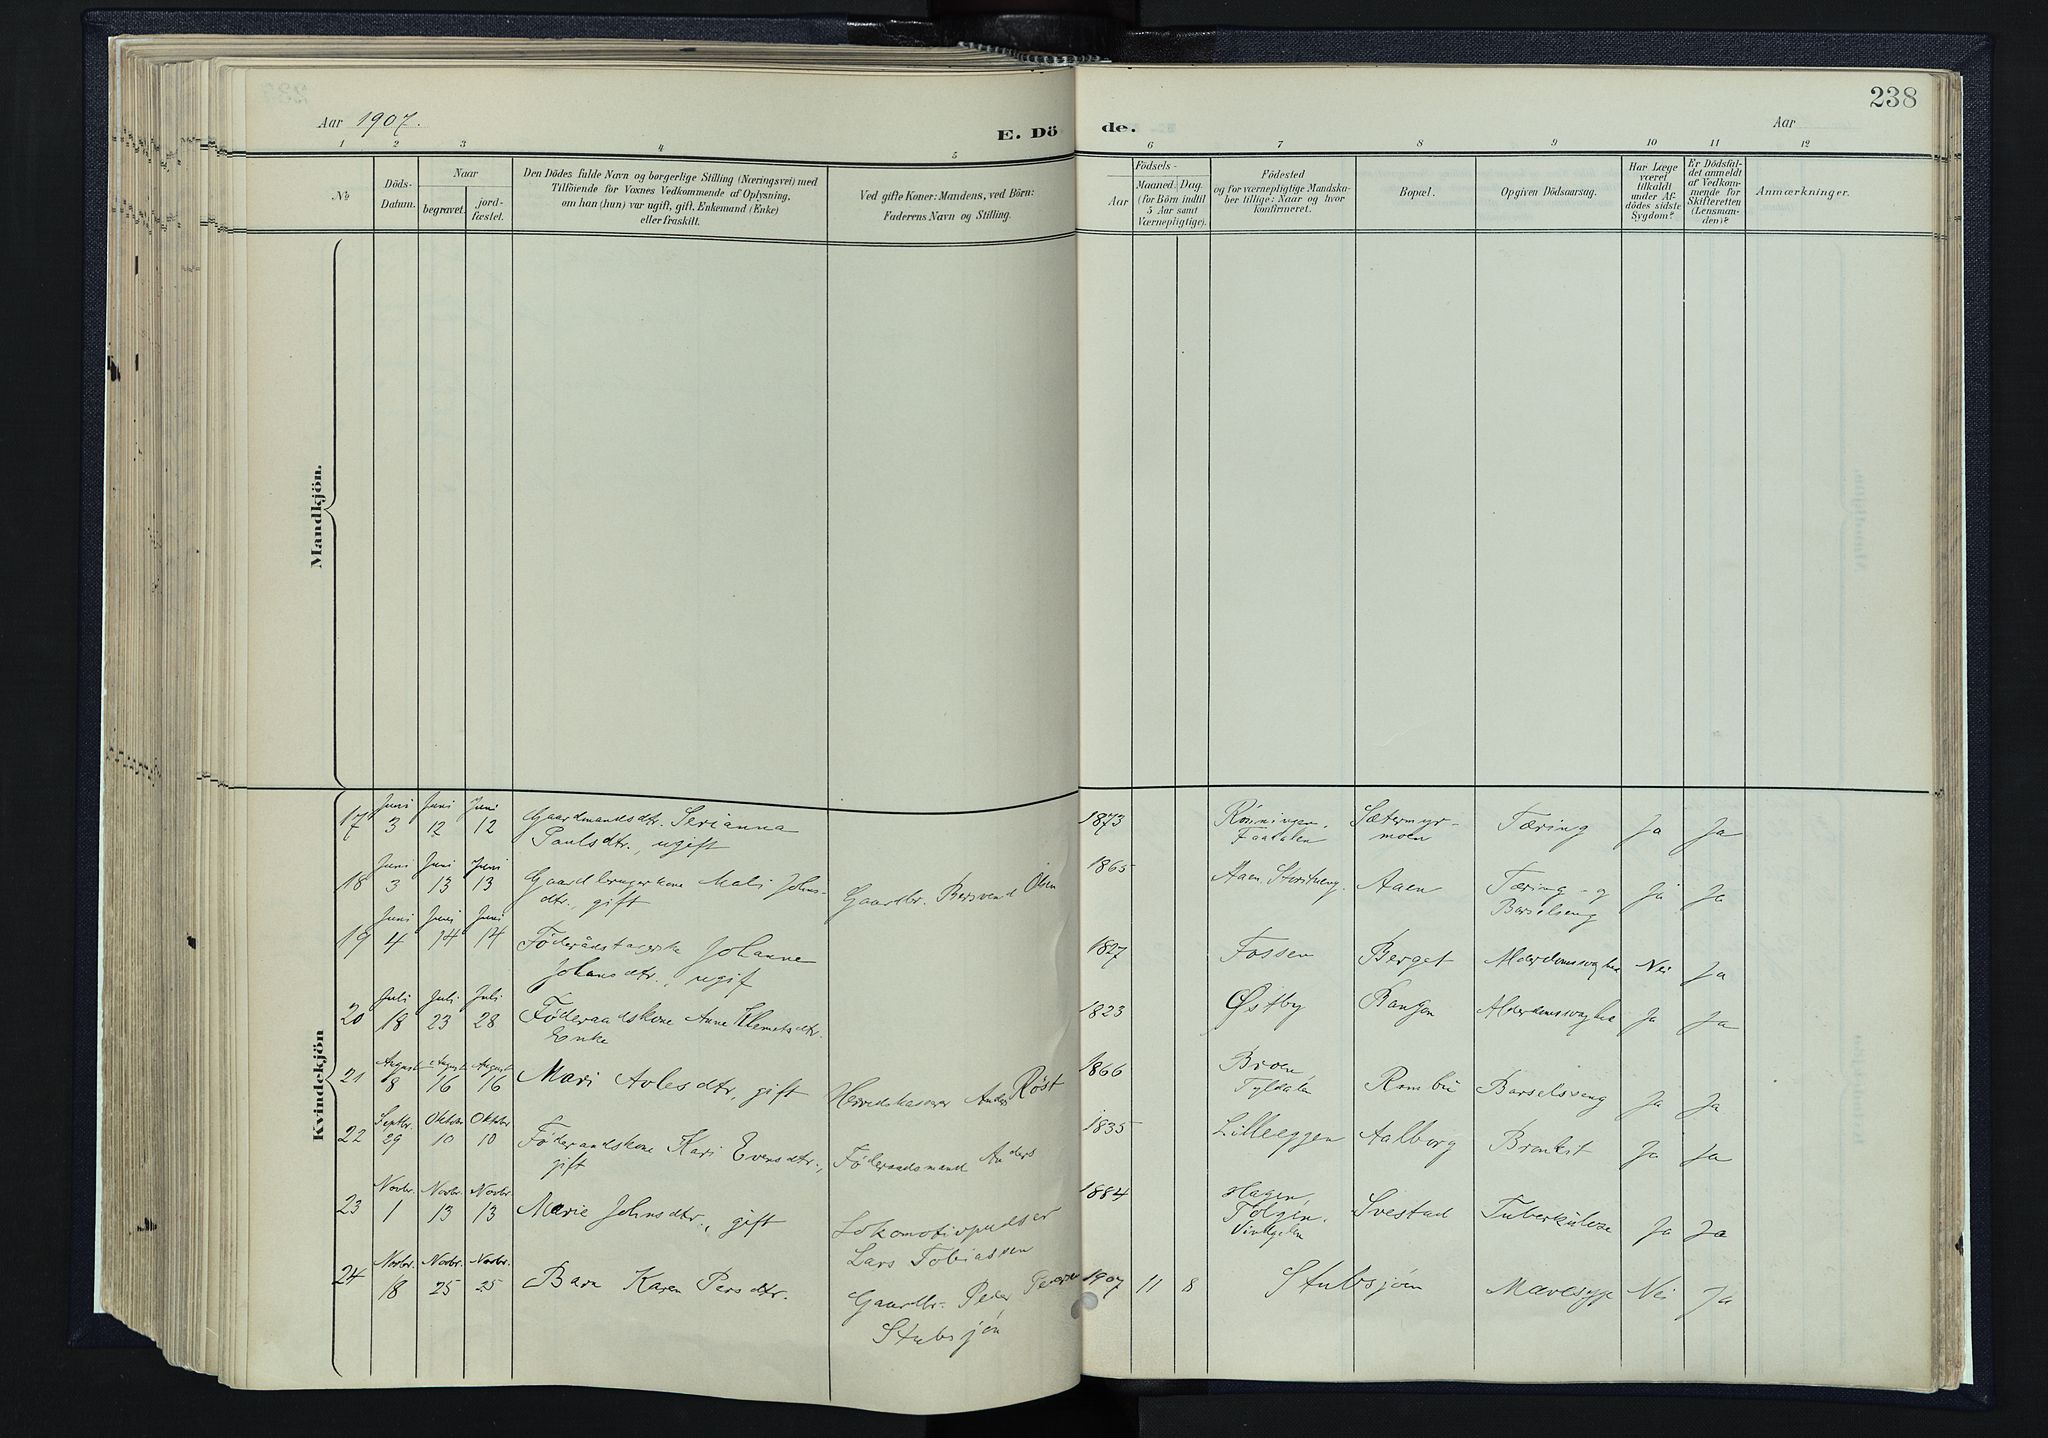 238
Aar 1907.
E. Dö de.
Aar
1 2 3 4 5 6 7 8 9 10 11 12
No
Döds-
Datum.
Naar
begravet.
jord-
fæstet.
Den Dödes fulde Navn og borgerlige Stilling (Næringsvei) med
Tilföiende for Voxnes Vedkommende af Oplysning,
om han (hun) var ugift, gift, Enkemand (Enke)
eller fraskilt.
Ved gifte Koner: Mandens, ved Börn:
Faderens Navn og Stilling.
Födsels-
Aar
Maaned. Dag.
(for Börn indtil
5 Aar samt
Værnepligtige).
Födested
og for værnepligtige Mandska-
ber tillige: Naar og hvor
konfirmeret.
Bopæl.
Opgiven Dödsaarsag.
Har Læge
været
tilkaldt
under Af-
dödes sidste
Sygdom?
Er Dödsfal-
det anmeldt
af Vedkom-
mende for
Skifteretten
(Lensman-
den)?
Anmærkninger.
Mandkjön.
Kvindekjön
17 Juni 3 Juni 12 Juni 12 Gaardmandsdtr. Serianna
Paulsdtr., ugift
1873 Rönningen, Faadalen Sætermyr-moen Tæring Ja Ja
18 Juni 3 Juni 13 Juni 13 Gaardbrugerkone Mali Johns-
dtr., gift
Gaardbr. Bersvend Olsen
1865 Aaen, Aaen Tæring og Barselseng Ja Ja
19 Juni 4 Juni 14 Juni 14 Föderådstagerske Johanne
Johansdtr., ugif
1827 Fossen Berget Alderdomssvaghed Nei Ja
20 Juli 18 Juli 23 Juli 28 Föderaadskone Anne Klemetsdtr.
Enke
1823 Østby Bangen Alderdomssvaghed Ja Ja
21 August 8 August 16 August 16 Mari Avlesdtr, gift
Herredskasserer Anders Röst
1866 Broen, Tyldalen Rambu Barselseng Ja Ja
22 Septbr. 29 Oktober 10 Oktobr 10 Föderaadskone Kari Evensdtr.,
gift
Föderaadsmand Anders
1835 Lilleeggen Aalborg Bronkit Ja Ja
23 Novbr. 1 Novbr. 13 Novbr. 13 Marie Johnsdtr., gift
Lokomotivpudser
Lars Tobiassen
1884 Hagen, Tolgen, Vingelen Svestad Tuberkulose Ja Ja
24 Novbr. 18 Novbr. 25 Novbr. 25 Barn Karen Persdtr.
Gaardbr. Peder Pedersen
Stubsjöen
1907 11 8 Stubsjöen Mavesyge Nei Ja